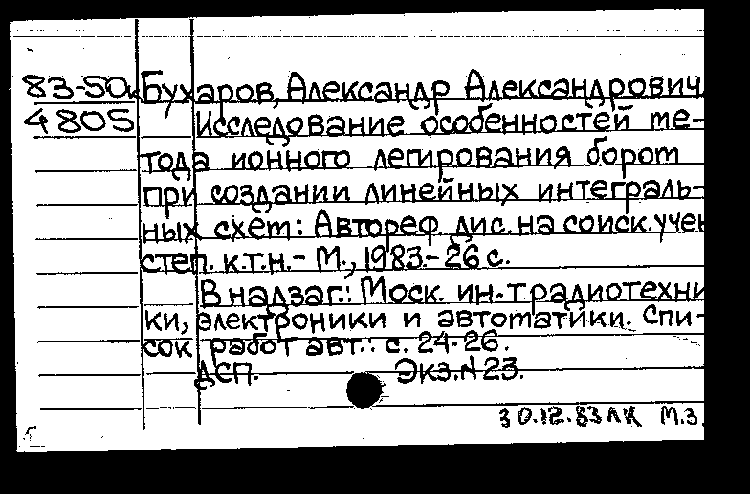 83-50к Бухаров, Александр Александрович.
4805 Исследование особенностей ме-
тода ионного легирования бором
при создании линейных интеграль-
ных схем: Автореф. дис. на соиск. учен
степ. к.т.н. - М., 1983. - 26 с.
В надзаг.: Моск. ин-т радиотехни
ки, электроники и автоматики. Спи-
сок работ авт.: с. 24-26.
ДСП. Экз. N 23.
30.12.83 ЛК М.З.